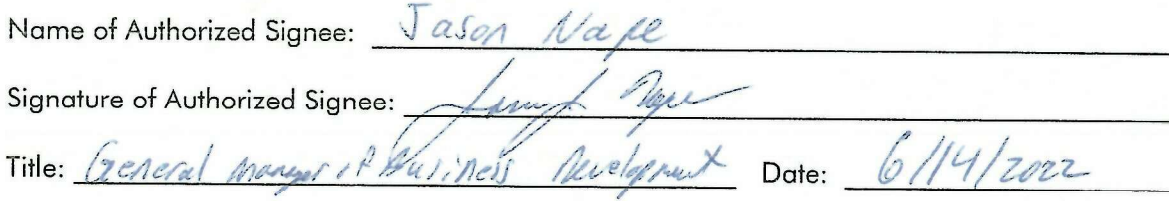 Name of Authorized Signee: Jason Nape
Signature of Authorized Signee:
Title: General Manager of Business Development Date: 6/14/2022